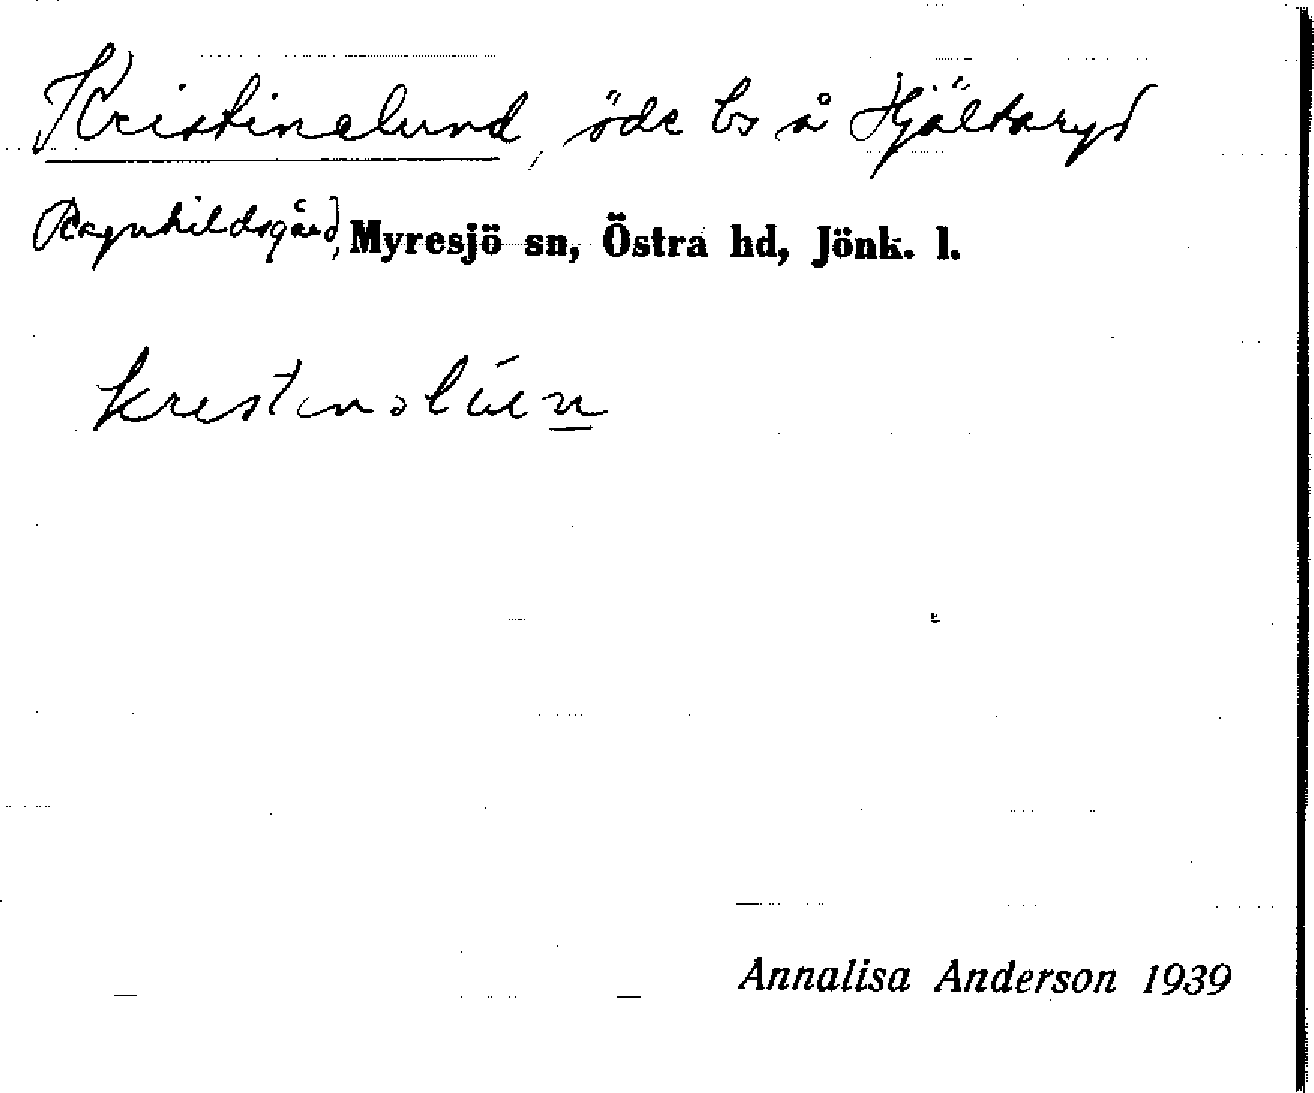 Kristinelund, öde bs å Hjältaryd
Ragnhildsgård, Myresjö sn, Östra hd, Jönk. l.
Annalisa Anderson 1939